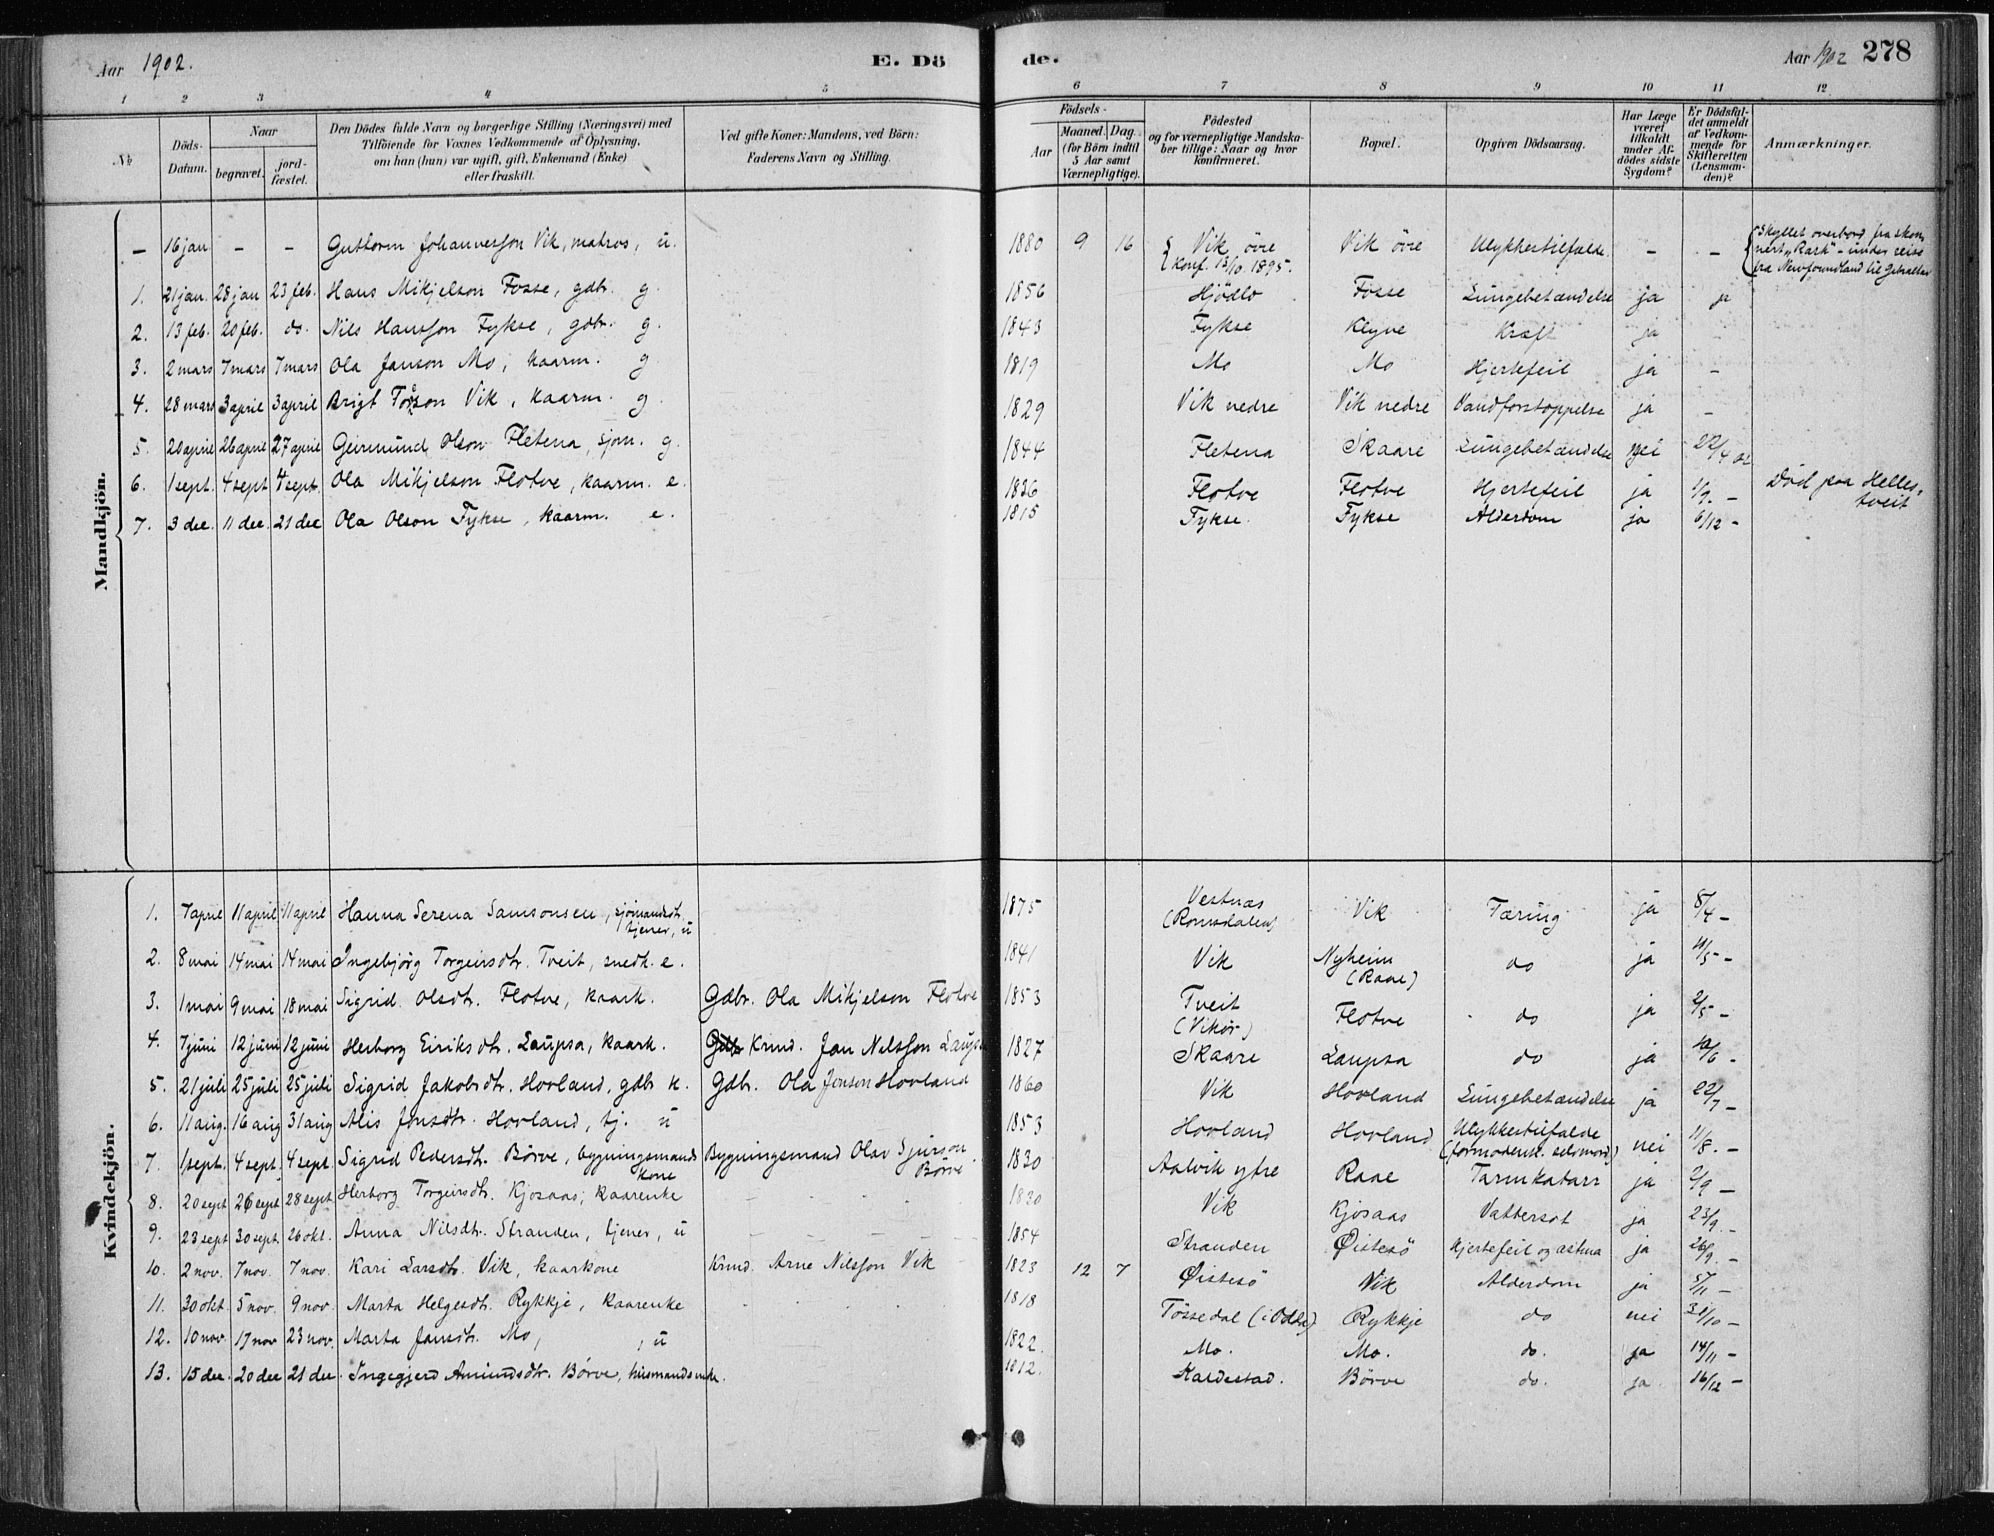 Aar 1902. E. Dö de. Aar 1902 278
1 2 3 4 5 6 7 8 9 10 11 12
No. Döds-Datum. Naar begravet. jordfæstet. Den Dödes fulde Navn og borgerlige Stilling (Næringsvei) med Tilföiende for Voxnes Vedkommende af Oplysning, om han (hun) var ugift, gift, Enkemand (Enke) eller fraskilt. Ved gifte Koner: Mandens, ved Börn: Faderens Navn og Stilling. Födsels- Aar Maaned. Dag. (for Börn indtil 5 Aar samt Værnepligtige). Födested og for værnepligtige Mandskaber tillige: Naar og hvor konfirmeret. Bopæl. Opgiven Dödsaarsag. Har Læge været tilkaldt under Afdödes sidste Sygdom? Er Dödsfaldet anmeldt af Vedkommende for Skifteretten (Lensmanden)? Anmærkninger.
Mandkjön.
– 16 jan – – Guttorm Johannesson Vik, matros, u. 1880 9 16 Vik övre Konf. 13/10 1895. Vik övre Ulykkestilfælde – – Skyllet overbord fra skonnert „Rask" – under reise fra Newfoundland til Gibraltar
1. 21 jan. 28 jan 23 feb. Hans Mikjelson Fosse, gdbr. g. 1856 Hjödlo Fosse Lungebetændelse ja ja
2. 13 feb. 20 feb. do. Nils Hansson Fykse, gdbr. g. 1843 Fykse Klyve Kræft ja
3. 2 mars 7 mars 7 mars Ola Janson Mo, kaarm. g 1819 Mo Mo Hjertefeil ja –
4. 28 mars 3 april 3 april Brigt Torsson Vik, kaarm. g. 1829 Vik nedre Vik nedre Vandforstoppelse ja –
5. 20 april 26 april 27 april Geirmund Olson Fletena, sjom. g. 1844 Fletena Skaare Lungebetændelse nei 22/4 02
6. 1 sept. 4 sept 4 sept. Ola Mikjelson Flotve, kaarm. e. 1836 Flotve Flotve Hjertefeil ja 1/9. – Död paa Hellestveit
7. 3 dec. 11 dec. 21 dec Ola Olson Fykse, kaarm. e. 1815 Fykse. Fykse Alderdom ja 6/12 –
Kvindekjön.
1. 7 april 11 april 11 april Hanna Serena Samsonsen, sjömandsdt. tjener, u 1875 Vestnas (Romsdalen) Vik Tæring ja 8/4 –
2. 8 mai 14 mai 14 mai Ingebjörg Torgeirsdtr. Tveit, snedk. e. 1841 Vik Nyheim (Raae) do ja 11/5 –
3. 1 mai 9 mai 18 mai Sigrid Olsdt. Flotve, kaark. Gdbr. Ola Mikjelson Flotve 1853 Tveit (Vikör) Flotve do ja 2/5 –
4. 7 juni 12 juni 12 juni Herborg Eiriksdtr. Laupsa, kaark. Krmd. Jan Nilsson Laupsa 1827 Skaare Laupsa do ja 10/6 –
5. 21 juli 25 juli 25 juli Sigrid Jakobsdtr. Hovland, gdbr k. Gdbr. Ola Jonson Hovland 1860 Vik Hovland Lungebetændelse ja 22/7 –
6. 11 aug. 16 aug 31 aug Alis Jonsdtr. Hovland, tj. u 1853 Hovland Hovland Ulykkestilfælde (formodentl. selvmord) nei 11/8. –
7. 1 sept. 4 sept. 4 sept. Sigrid Pedersdt. Börve, bygningsmands kone Bygningsmand Olav Sjurson Börve 1830 Aalvik ytre Raae Tarmkatarr ja 2/9 –
8. 20 sept 26 sept 28 sept Herborg Torgeirsdtr. Kjosaas, kaarenke 1830 Vik Kjosaas Vattersot ja 23/9. –
9. 23 sept 30 sept. 26 okt. Anna Nilsdt. Stranden, tjener, u 1854 Stranden Øistesö Hjertefeil og astma ja 26/9. –
10. 2 nov. 7 nov. 7 nov. Kari Larsdtr. Vik, kaarkone Krmd. Arne Nilsson Vik 1823 12 7 Øistesö Vik Alderdom ja 5/11 –
11. 30 okt. 5 nov. 9 nov. Marta Helgesdt. Rykkje, kaarenke 1818 Tössedal (i Odda) Rykkje do nei 31/10 –
12. 10 nov. 17 nov 23 nov. Marta Jansdt. Mo, , u 1822. Mo. Mo. do. ja 14/11 –
13. 15 dec. 20 dec 21 dec. Ingegjerd Amundsdtr. Börve, husmandsenke. 1812. Kaldestad. Börve do. ja 16/12 –